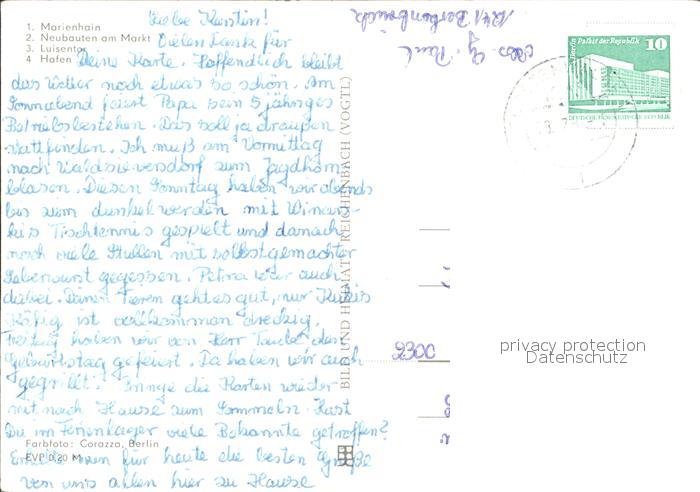 1. Marienhain
2. Neubauten am Markt
3. Luisentor
4 Hafen
Liebe Kerstin!
Vielen Dank für
Deine Karte. Hoffentlich bleibt
das Wetter noch etwas so schön. Am
Sonnabend feiert Papa sein 5 jähriges
Betriebsbestehen. Das soll ja draußen
stattfinden. Ich muß am Vormittag
nach Waldsieversdorf zum Jagdhorn
blasen. Diesen Sonntag haben wir abends
bis zum dunkelwerden mit
Tischtennis gespielt und danach
noch viele Stullen mit selbstgemachter
Leberwurst gegessen. Petra war auch
dabei. Deinen Tieren geht es gut, nur
Käfig ist vollkommen dreckig.
Freitag haben wir von Herr Taube den
Geburtstag gefeiert. Da haben wir auch
gegrillt. Bringe die Karten wieder
mit nach Hause zum Sammeln. Hast
Du im Ferienlager viele Bekannte getroffen?
nun für heute die besten Grüße
von uns allen hier zu Hause
Farbfoto: Corazza, Berlin
EVP 0,20 M
BILD UND HEIMAT REICHENBACH (VOGTL)
Berlin, Palast der Republik
10
DEUTSCHE DEMOKRATISCHE REPUBLIK
2300
privacy protection
Datenschutz